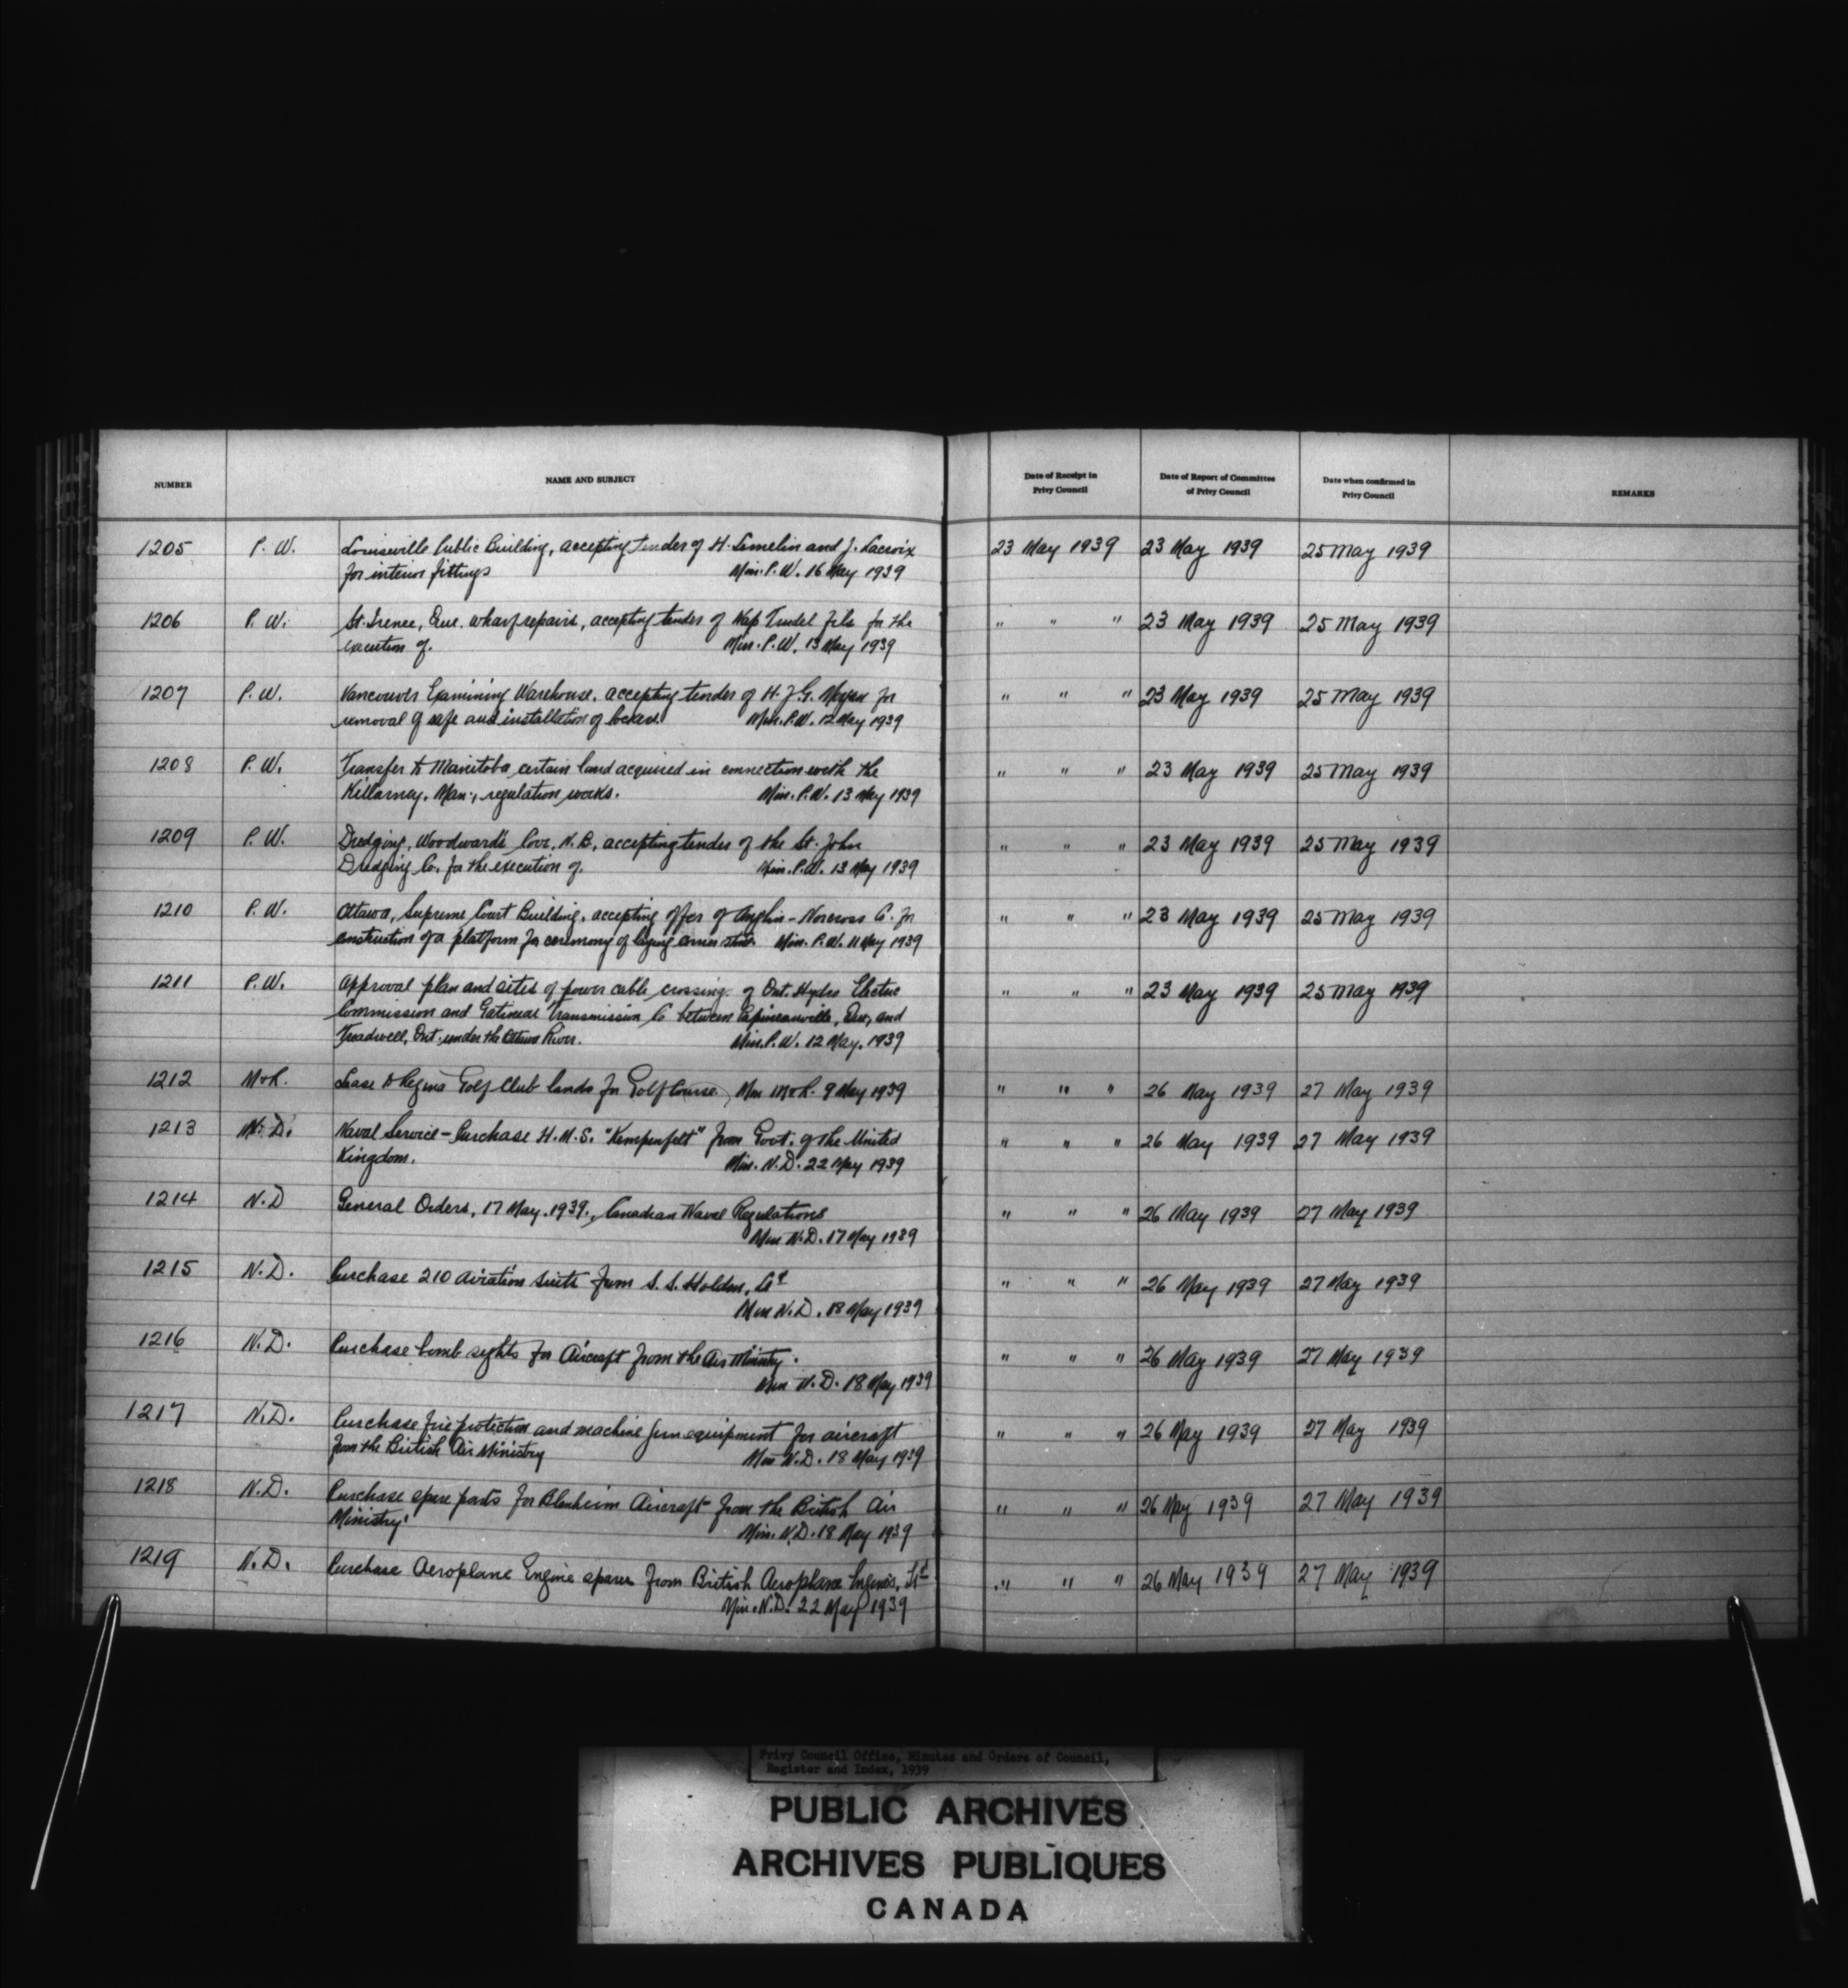 NUMBER NAME AND SUBJECT Date of Receipt in Privy Council Date of Report of Committee of Privy Council Date when confirmed in Privy Council REMARKS
1205 P. W. Louiseville Public Building, accepting tender of H. Lemelin and J. Lacroix 23 May 1939 23 May 1939 25 May 1939
for interior fittings Min. P. W. 16 May 1939
1206 P. W. St. Irenee, Que. wharf repairs, accepting tender of Nap Trudel Fils for the " " " 23 May 1939 25 May 1939
execution of. Min. P. W. 13 May 1939
1207 P. W. Vancouver Examining Warehouse, accepting tender of H. J. G. for " " " 23 May 1939 25 May 1939
removal of safe and installation of lockers Min. P. W. 12 May 1939
1208 P. W. Transfer to Manitoba certain land acquired in connection with the " " " 23 May 1939 25 May 1939
Killarney, Man., regulation works. Min. P. W. 13 May 1939
1209 P. W. Dredging, Woodward's Cove, N. B., accepting tender of the St. John " " " 23 May 1939 25 May 1939
Dredging Co. for the execution of. Min. P. W. 13 May 1939
1210 P. W. Ottawa, Supreme Court Building, accepting offer of Anglin-Norcross Co. for " " " 23 May 1939 25 May 1939
construction of a platform for ceremony of laying corner stone. Min. P. W. 11 May 1939
1211 P. W. Approval plan and sites of power cable crossing of Ont. Hydro Electric " " " 23 May 1939 25 May 1939
Commission and Gatineau Transmission Co between Papineauville, Que, and
Treadwell, Ont. under the Ottawa River. Min. P. W. 12 May, 1939
1212 M & R. Lease to Regina Golf Club lands for Golf Course. Min M & R. 9 May 1939 " " " 26 May 1939 27 May 1939
1213 N. D. Naval Service - Purchase H. M. S. "Kempenfelt" from Govt. of the United " " " 26 May 1939 27 May 1939
Kingdom. Min. N. D. 22 May 1939
1214 N. D General Orders, 17 May. 1939., Canadian Naval Regulations " " " 26 May 1939 27 May 1939
Min N. D. 17 May 1939
1215 N. D. Purchase 210 aviation suits from S. S. Holden, " " " 26 May 1939 27 May 1939
Min N. D. 18 May 1939
1216 N. D. Purchase bomb sights for Aircraft from the Air Ministry. " " " 26 May 1939 27 May 1939
Min N. D. 18 May 1939
1217 N. D. Purchase fire protection and machine gun equipment for aircraft " " " 26 May 1939 27 May 1939
from the British Air Ministry Min N. D. 18 May 1939
1218 N. D. Purchase spare parts for Blenheim Aircraft from the British Air " " " 26 May 1939 27 May 1939
Ministry. Min. N. D. 18 May 1939
1219 N. D. Purchase Aeroplane Engine spares from British Aeroplane Engines, Ltd " " " 26 May 1939 27 May 1939
Min. N. D. 22 May 1939
Privy Council Office, Minutes and Orders of Council,
Register and Index, 1939
PUBLIC ARCHIVES
ARCHIVES PUBLIQUES
CANADA